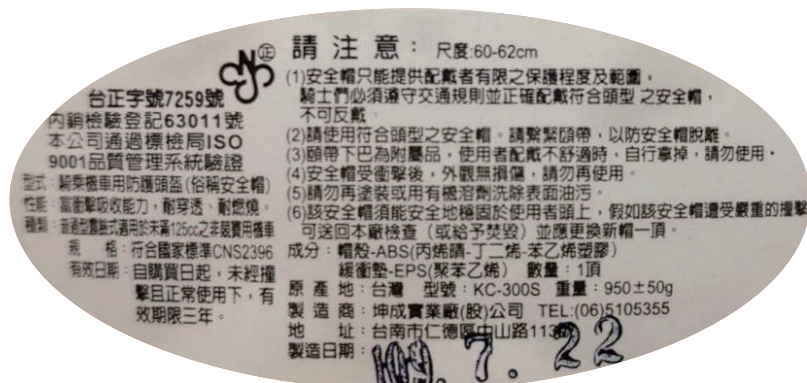 正
台正字號7259號
內銷檢驗登記63011號
本公司通過標檢局ISO
9001品質管理系統驗證
型式：騎乘機車用防護頭盔(俗稱安全帽)
性能：富衝擊吸收能力，耐穿透、耐燃燒。
種類：普通型露臉式適用於未滿125cc之非競賽用機車
規　格：符合國家標準CNS2396
有效日期：自購買日起，未經撞
擊且正常使用下，有
效期限三年。
請 注 意： 尺度:60-62cm
(1)安全帽只能提供配戴者有限之保護程度及範圍，
騎士們必須遵守交通規則並正確配戴符合頭型 之安全帽，
不可反戴。
(2)請使用符合頭型之安全帽。請繫緊頤帶，以防安全帽脫離。
(3)頤帶下巴為附屬品，使用者配戴不舒適時，自行拿掉，請勿使用。
(4)安全帽受衝擊後，外觀無損傷，請勿再使用。
(5)請勿再塗裝或用有被溶劑洗除表面油污。
(6)該安全帽須能安全地穩固於使用者頭上，假如該安全帽遭受嚴重的撞擊
可送回本廠檢查（或給予焚毀）並應更換新帽一頂。
成分：帽殼-ABS(丙烯腈-丁二烯-苯乙烯塑膠)
緩衝墊-EPS(聚苯乙烯)　數量：1頂
原 產 地：台灣　型號：KC-300S　重量：950±50g
製 造 商：坤成實業廠(股)公司　TEL:(06)5105355
地　　址：台南市仁德區中山路113
製造日期：109. 7. 22